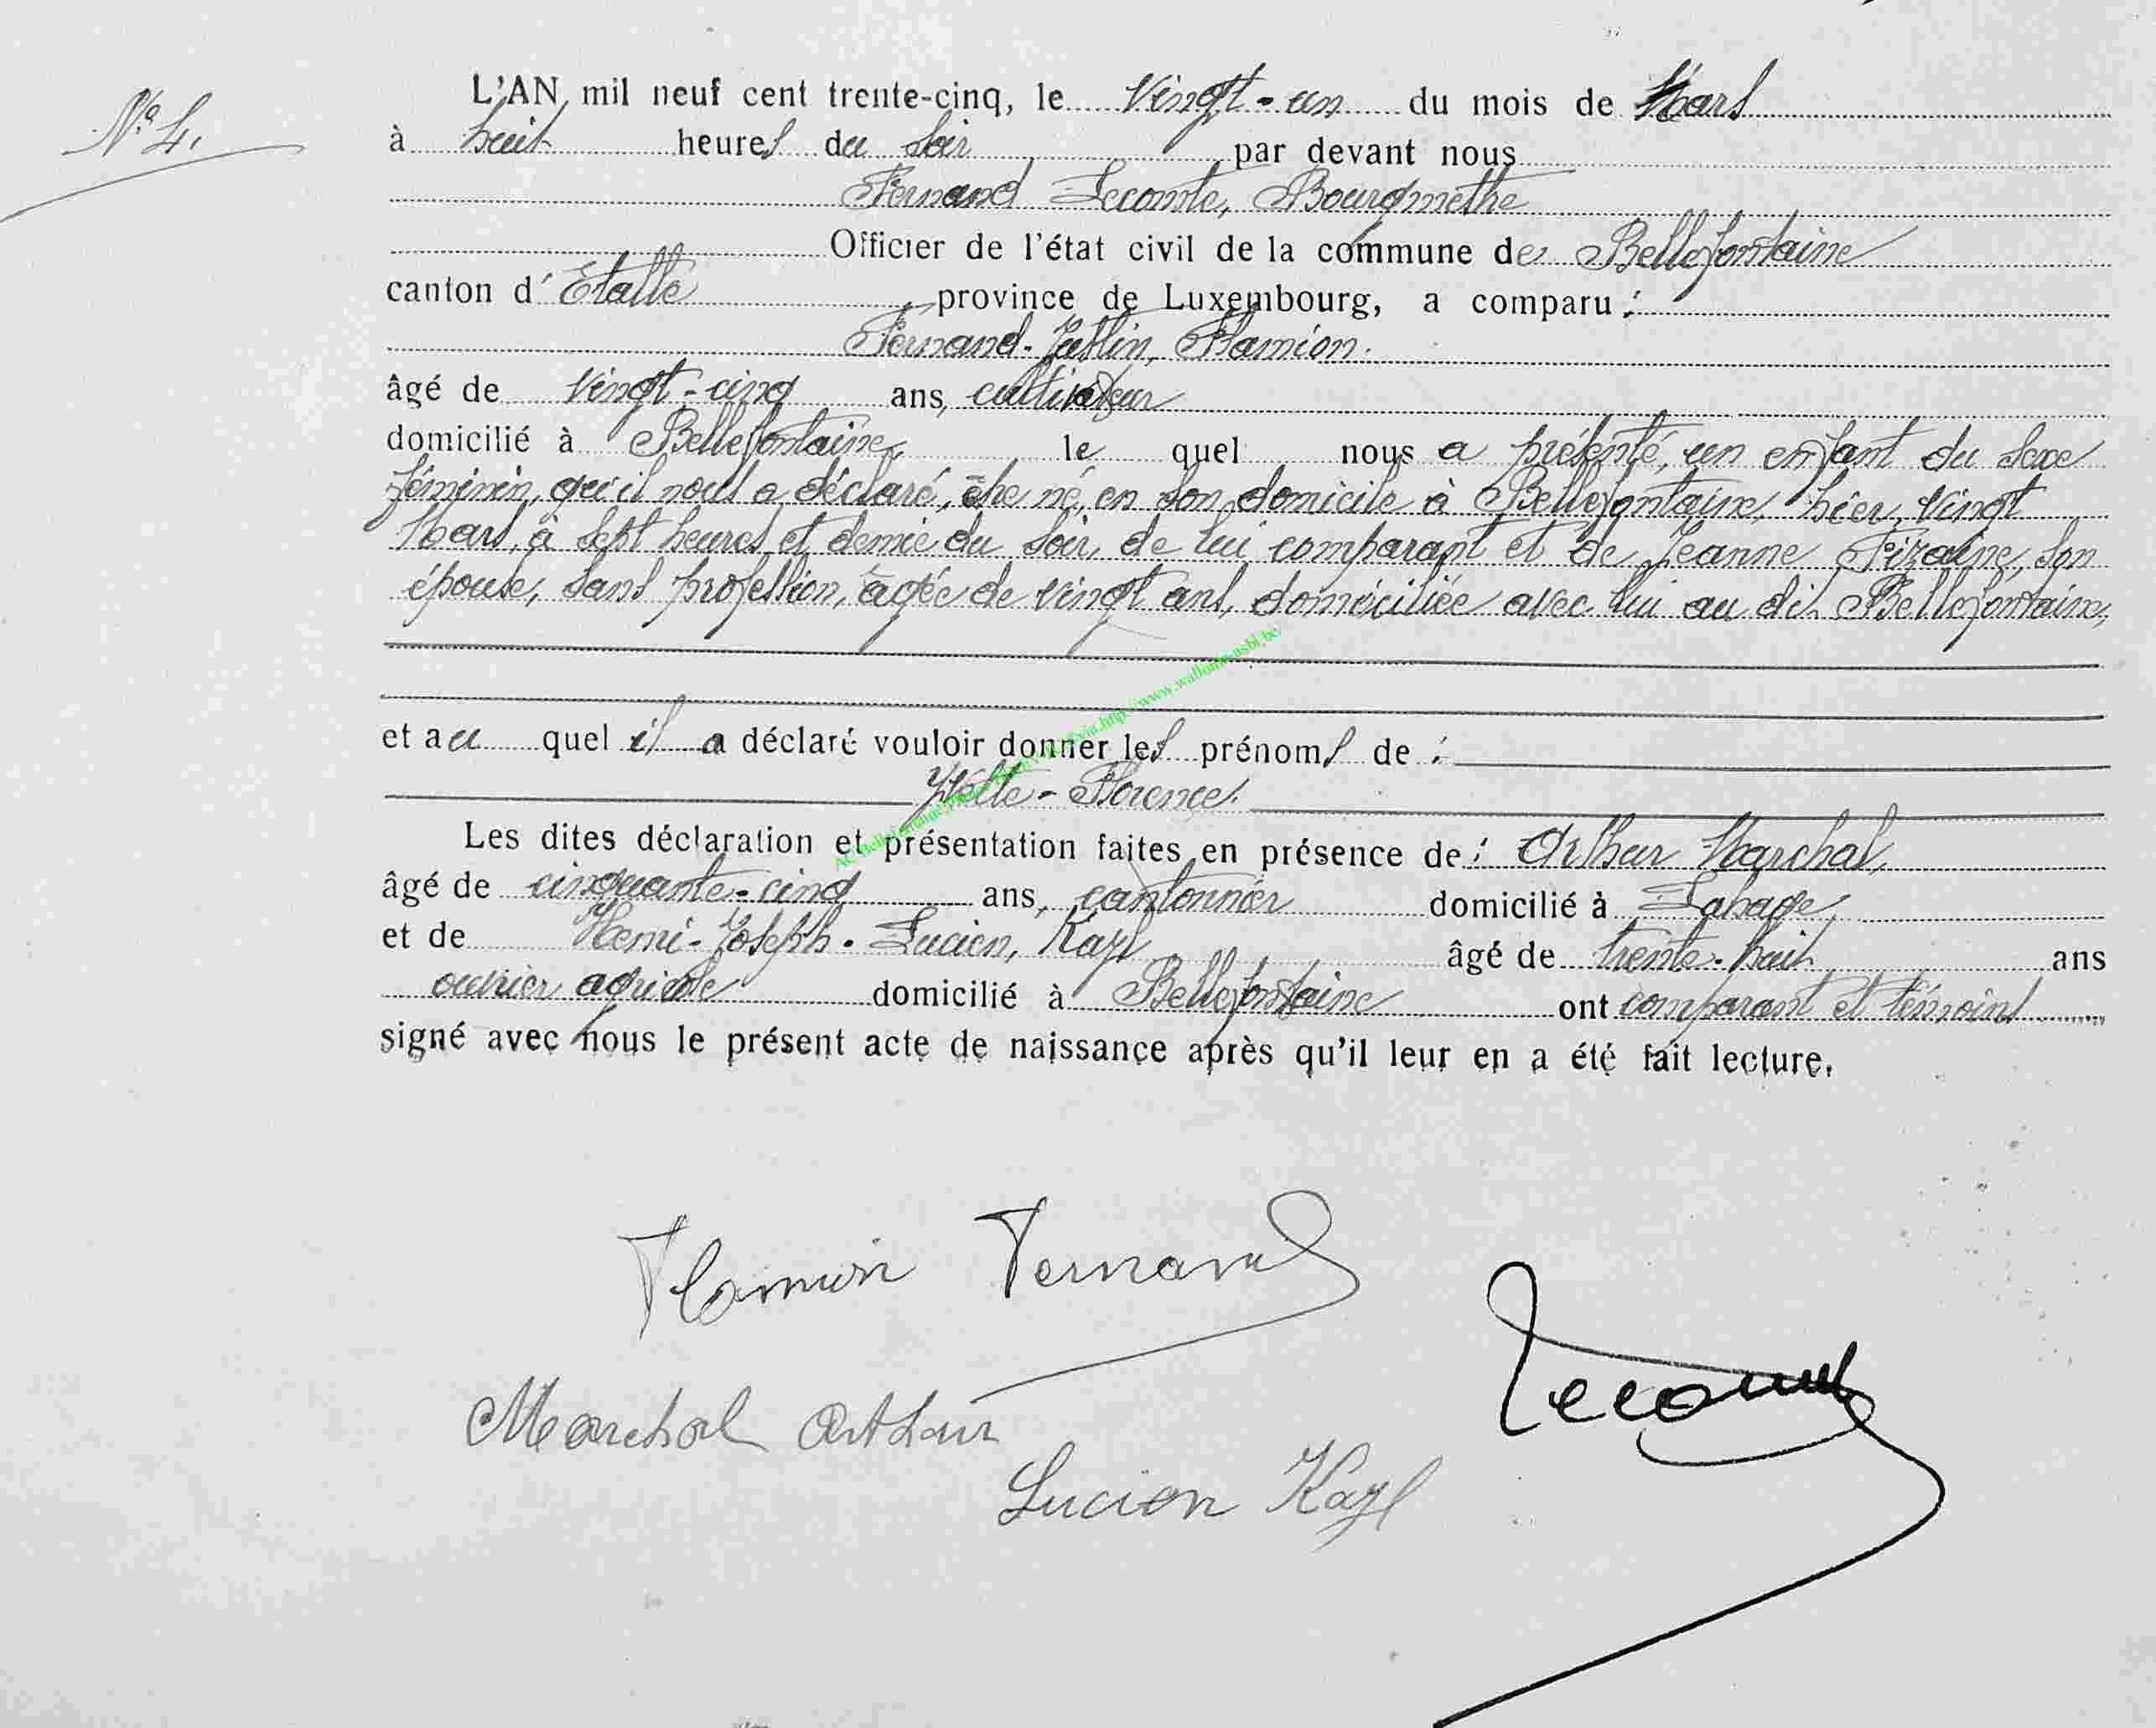 N° 4.
L'AN mil neuf cent trente-cinq, le Vingt-un du mois de Mars
à huit heures du soir, par devant nous
Fernand Lecomte, Bourgmestre
Officier de l'état civil de la commune de Bellefontaine
canton d'Etalle province de Luxembourg, a comparu :
Fernand-Justin, Flamion.
âgé de Vingt-cinq ans, cultivateur
domicilié à Bellefontaine, le quel nous a présenté, un enfant du sexe
féminin, qu'il nous a déclaré, être né, en son domicile à Bellefontaine, hier, vingt
Mars, à sept heures et demie du soir, de lui comparant et de Jeanne Fizaine, son
épouse, sans profession, âgée de vingt ans, domiciliée avec lui au dit Bellefontaine,
et au quel il a déclaré vouloir donner les prénoms de :
Yvette-Florence.
Les dites déclaration et présentation faites en présence de : Arthur Marchal,
âgé de cinquante-cinq ans, cantonnier domicilié à Lahage,
et de Henri-Joseph-Lucien, Kazl âgé de trente-huit ans
ouvrier agricole domicilié à Bellefontaine ont comparant et témoins
signé avec nous le présent acte de naissance après qu'il leur en a été fait lecture.
Flamion Fernand
Lecomte
Marchal Arthur
Lucien Kazl